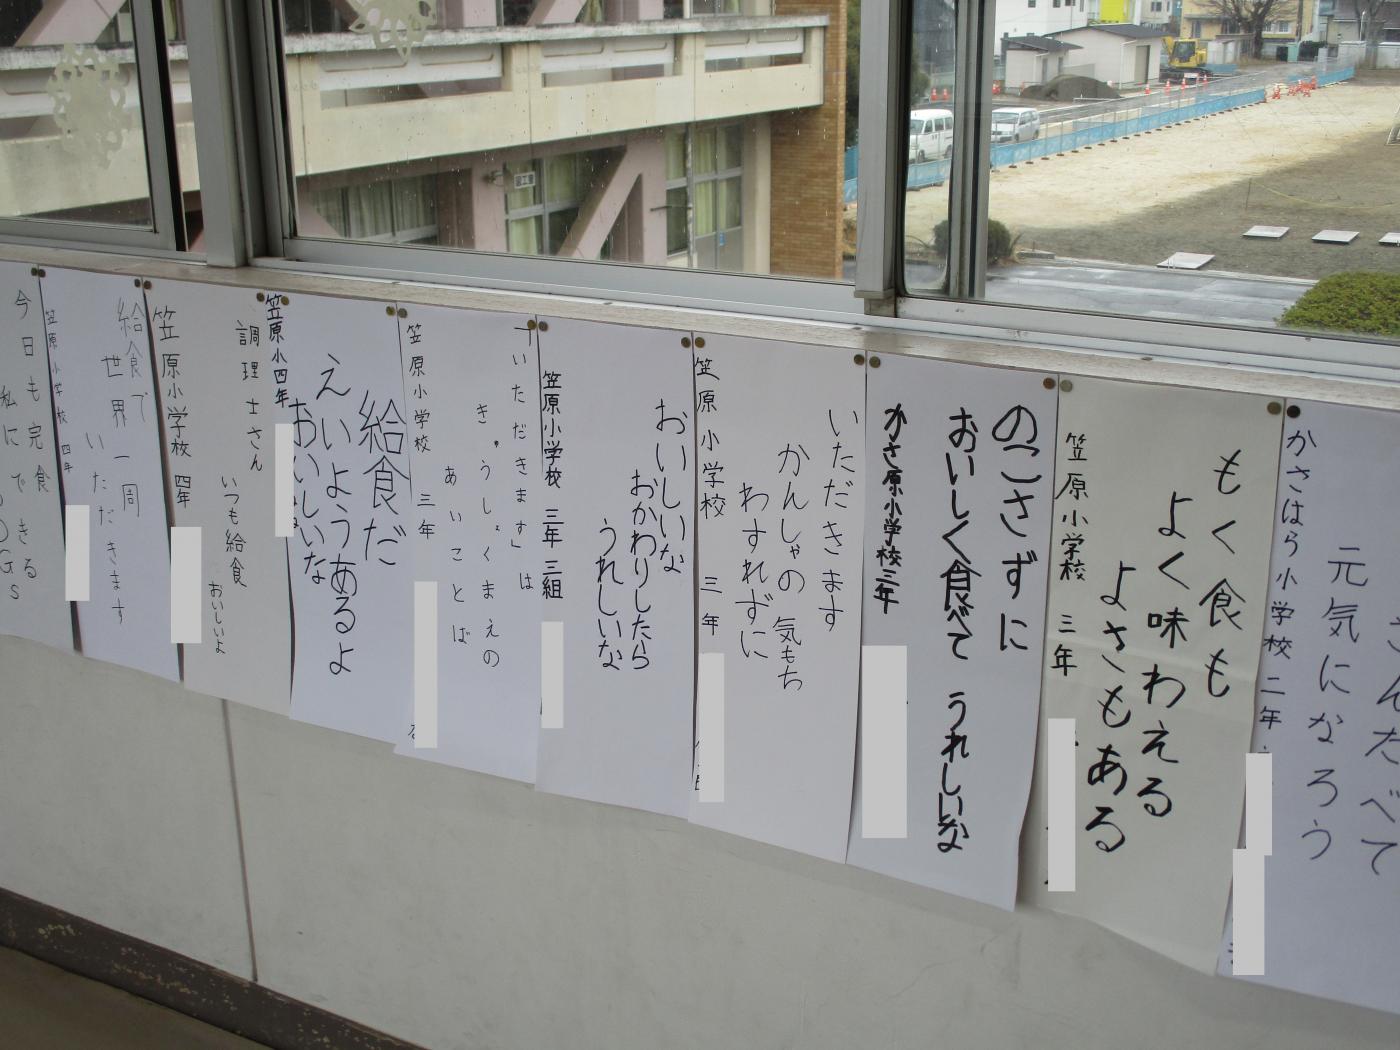 たべて
元気になろう
かさはら小学校二年
もく食も
よく味わえる
よさもある
笠原小学校 三年
のこさずに
おいしく食べて うれしいな
かさ原小学校三年
いただきます
かんしゃの気もち
わすれずに
笠原小学校 三年
おいしいな
おかわりしたら
うれしいな
笠原小学校 三年 三組
「いただきます」は
きゅうしょくまえの
あいことば
笠原小学校 三年
給食だ
えいようあるよ
おいしいな
笠原小四年
調理士さん
いつも給食
おいしいよ
笠原小学校 四年
給食で
世界一周
いただきます
笠原小学校 四年
今日も完食
私にできる
GS